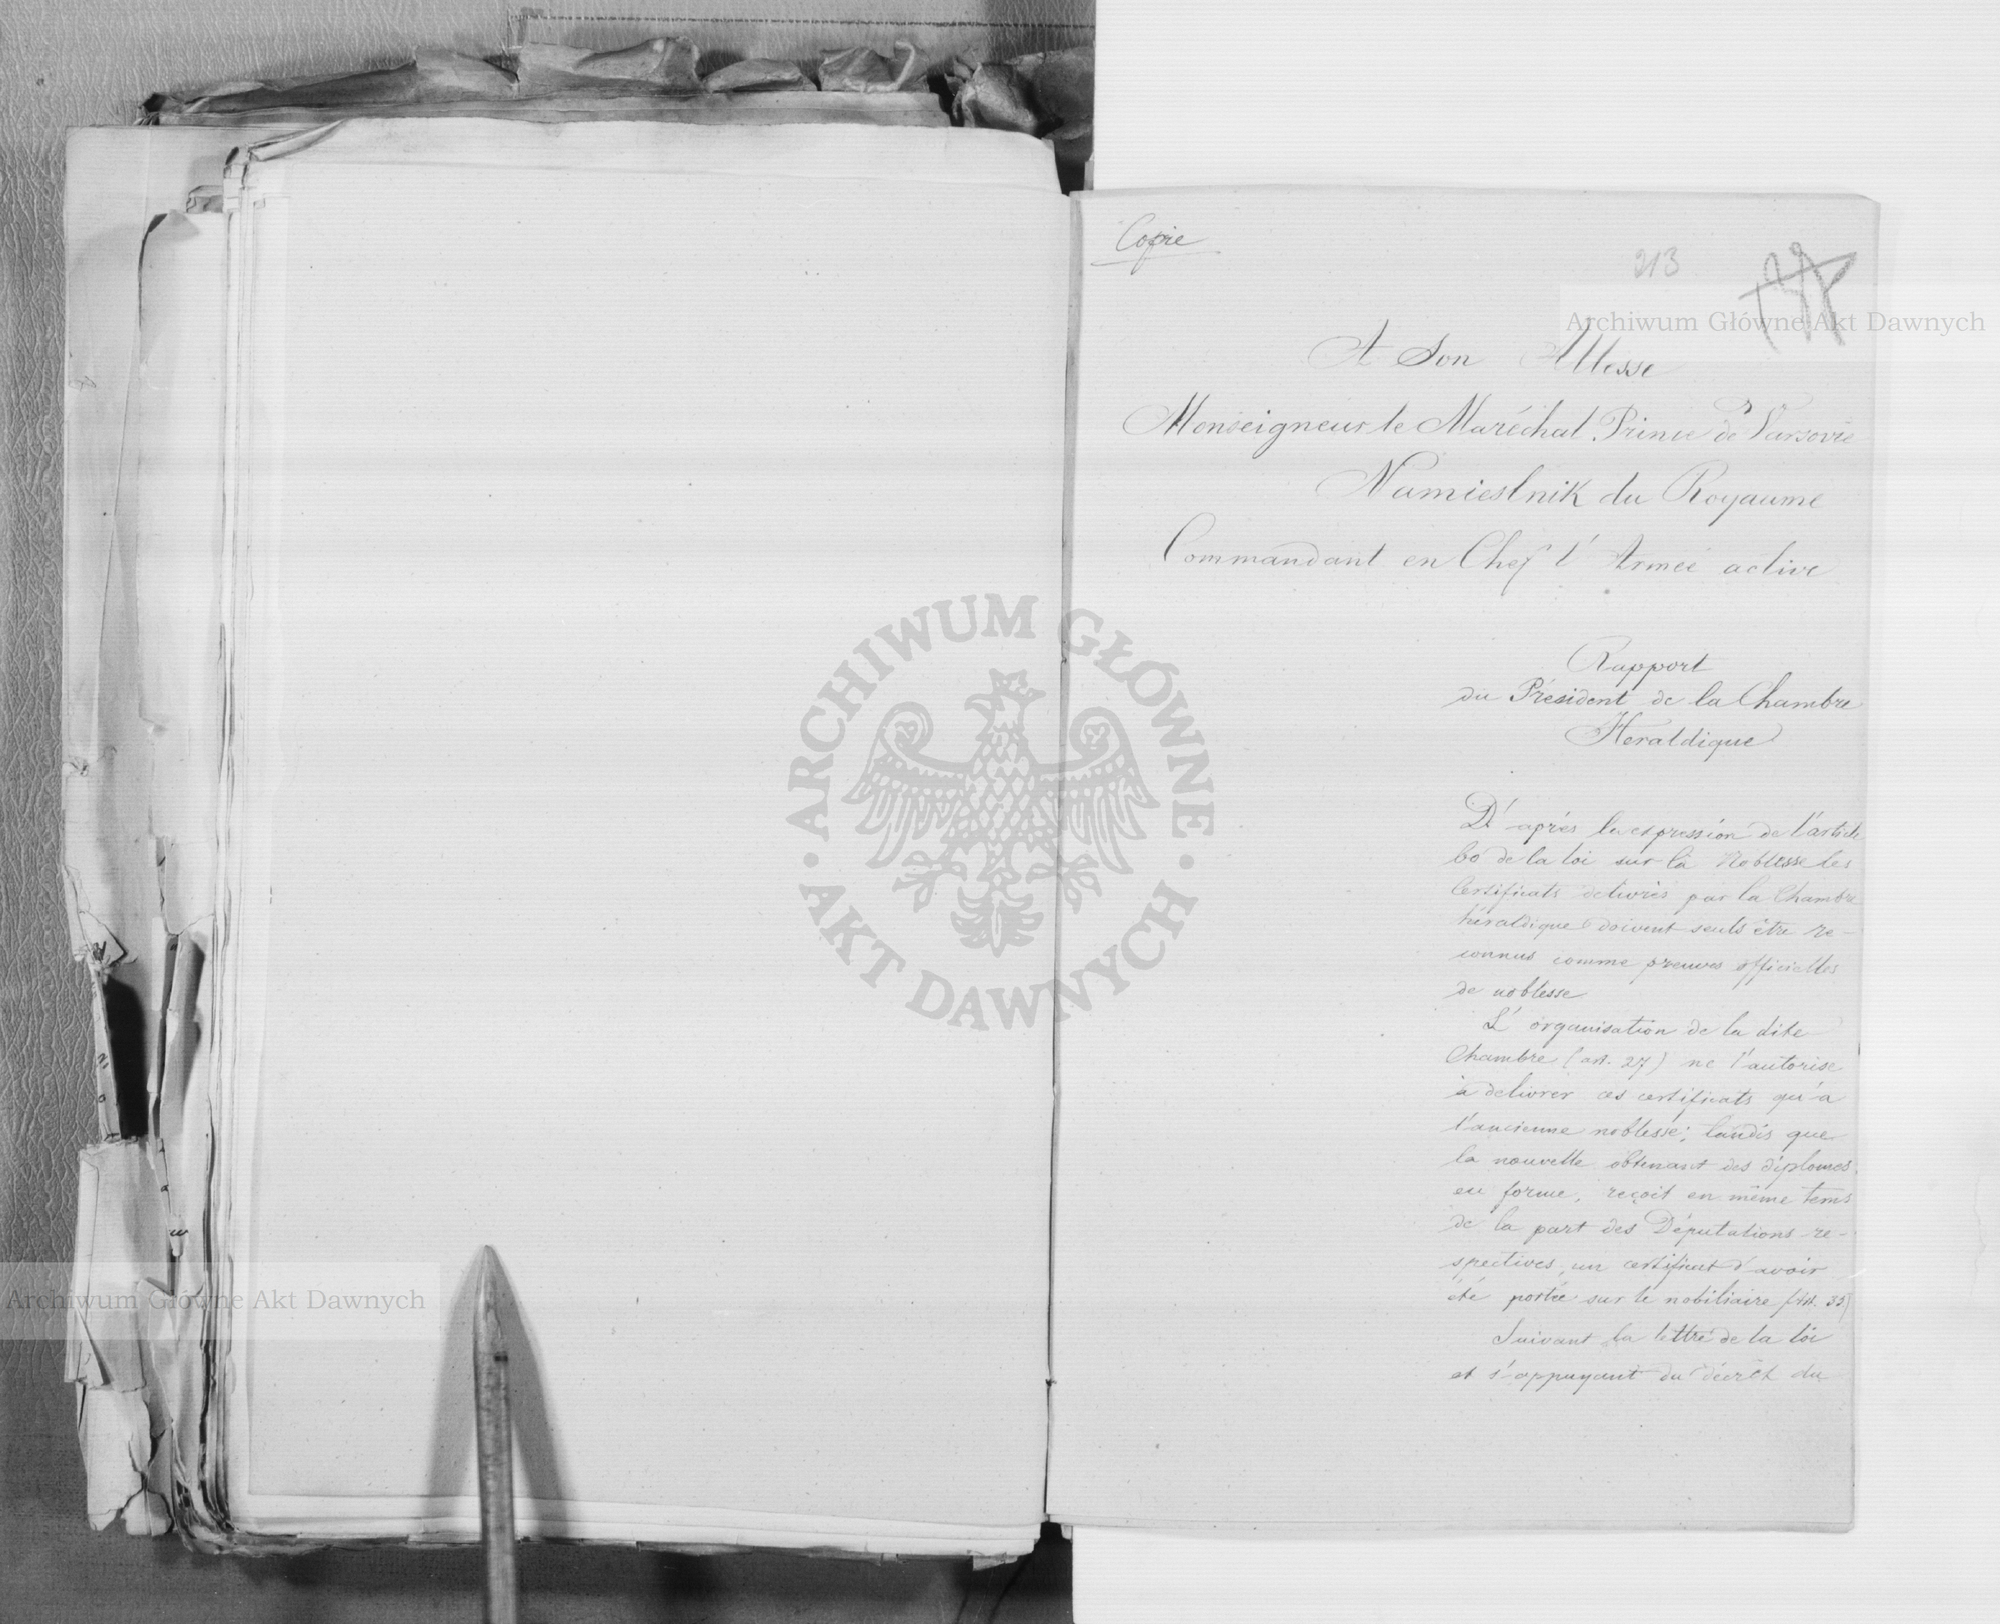 Copie
213
Archiwum Główne Akt Dawnych
A Son Altesse
Monseigneur le Maréchal Prince de Varsovie
Namiestnik du Royaume
Commandant en Chef l'Armée active
Rapport
du Président de la Chambre
Heraldique
D'après l'expression de l'article
60 de la loi sur la Noblesse les
Certificats delivrés par la Chambre
héraldique doivent seuls être re-
connus comme preuves officielles
de noblesse
L'organisation de la dite
Chambre (art. 27) ne l'autorise
à delivrer ces certificats qu'à
l'ancienne noblesse; tandis que
la nouvelle obtenant des diplomes
en forme, reçoit en même tems
de la part des Députations re-
spectives, un certificat d'avoir
été portée sur le nobiliaire (Art. 35)
Suivant la lettre de la loi
et s'appuyant du décrêt du
ARCHIWUM GŁÓWNE
AKT DAWNYCH
Archiwum Główne Akt Dawnych